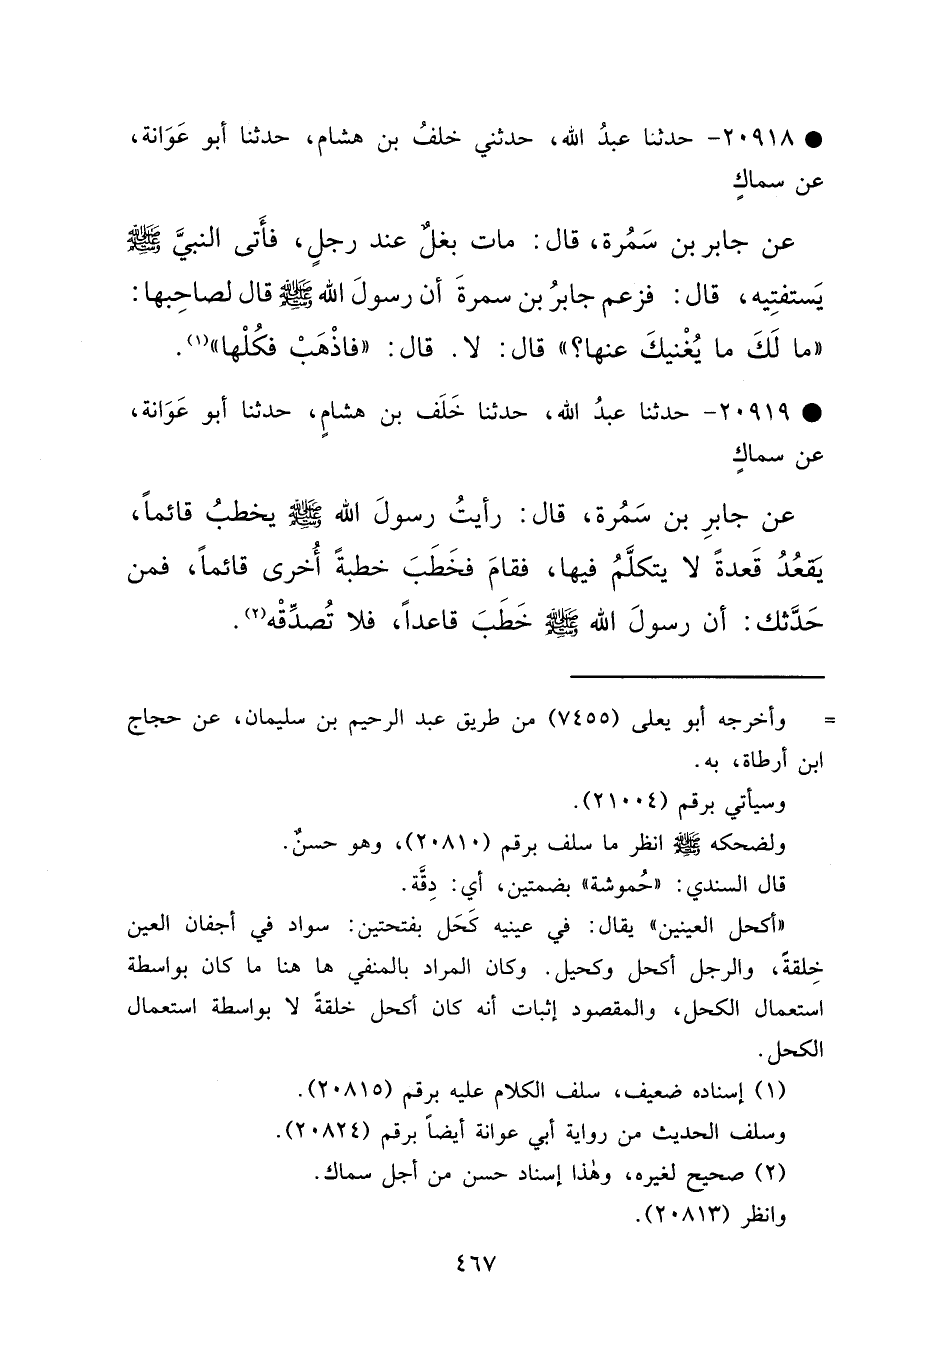 ● ٢٠٩١٨- حدثنا عبدُ الله، حدثني خلفُ بن هشام، حدثنا أبو عَوَانة،
عن سماكٍ
عن جابر بن سَمُرة، قال: مات بغلٌ عند رجلٍ، فأَتى النبيَّ ﷺ
يَستفتِيه، قال: فزعم جابرُ بن سمرةَ أن رسولَ الله ﷺ قال لصاحِبها:
«ما لَكَ ما يُغْنيكَ عنها؟» قال: لا. قال: «فاذْهَبْ فكُلْها»(١).
● ٢٠٩١٩- حدثنا عبدُ الله، حدثنا خَلَف بن هشامٍ، حدثنا أبو عَوَانة،
عن سماكٍ
عن جابرِ بن سَمُرة، قال: رأيتُ رسولَ الله ﷺ يخطبُ قائماً،
يَقعُدُ قَعدةً لا يتكلَّمُ فيها، فقامَ فخَطَبَ خطبةً أُخرى قائماً، فمن
حَدَّثك: أن رسولَ الله ﷺ خَطَبَ قاعداً، فلا تُصدِّقْه(٢).
= وأخرجه أبو يعلى (٧٤٥٥) من طريق عبد الرحيم بن سليمان، عن حجاج
ابن أرطاة، به.
وسيأتي برقم (٢١٠٠٤).
ولضحكه ﷺ انظر ما سلف برقم (٢٠٨١٠)، وهو حسنٌ.
قال السندي: «حُموشة» بضمتين، أي: دِقَّة.
«أكحل العينين» يقال: في عينيه كَحَل بفتحتين: سواد في أجفان العين
خِلقةً، والرجل أكحل وكحيل. وكان المراد بالمنفي ها هنا ما كان بواسطة
استعمال الكحل، والمقصود إثبات أنه كان أكحل خلقةً لا بواسطة استعمال
الكحل.
(١) إسناده ضعيف، سلف الكلام عليه برقم (٢٠٨١٥).
وسلف الحديث من رواية أبي عوانة أيضاً برقم (٢٠٨٢٤).
(٢) صحيح لغيره، وهٰذا إسناد حسن من أجل سماك.
وانظر (٢٠٨١٣).
٤٦٧